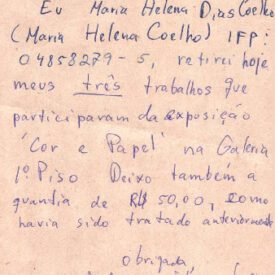 Eu Maria Helena Dias Coelho
(Maria Helena Coelho) IFP:
04858279-5, retirei hoje
meus três trabalhos que
participaram da exposição
'Cor e Papel' na Galeria
1º Piso Deixo também a
quantia de R$ 50,00, como
havia sido tratado anteriormente
obrigada